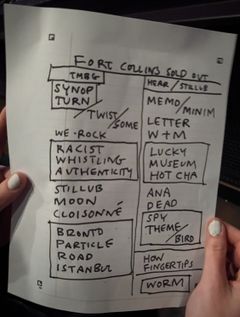 FORT COLLINS SOLD OUT
TMBG
SYNOP
TURN
TWIST/SOME
WE-ROCK
RACIST
WHISTLING
AUTHENTICITY
STILLUB
MOON
CLOISONNÉ
BRONTO
PARTICLE
ROAD
ISTANBUL
HEAR/STILLUB
MEMO/MINIM
LETTER
W+M
LUCKY
MUSEUM
HOT CHA
ANA
DEAD
SPY
THEME/BIRD
HOW
FINGERTIPS
WORM